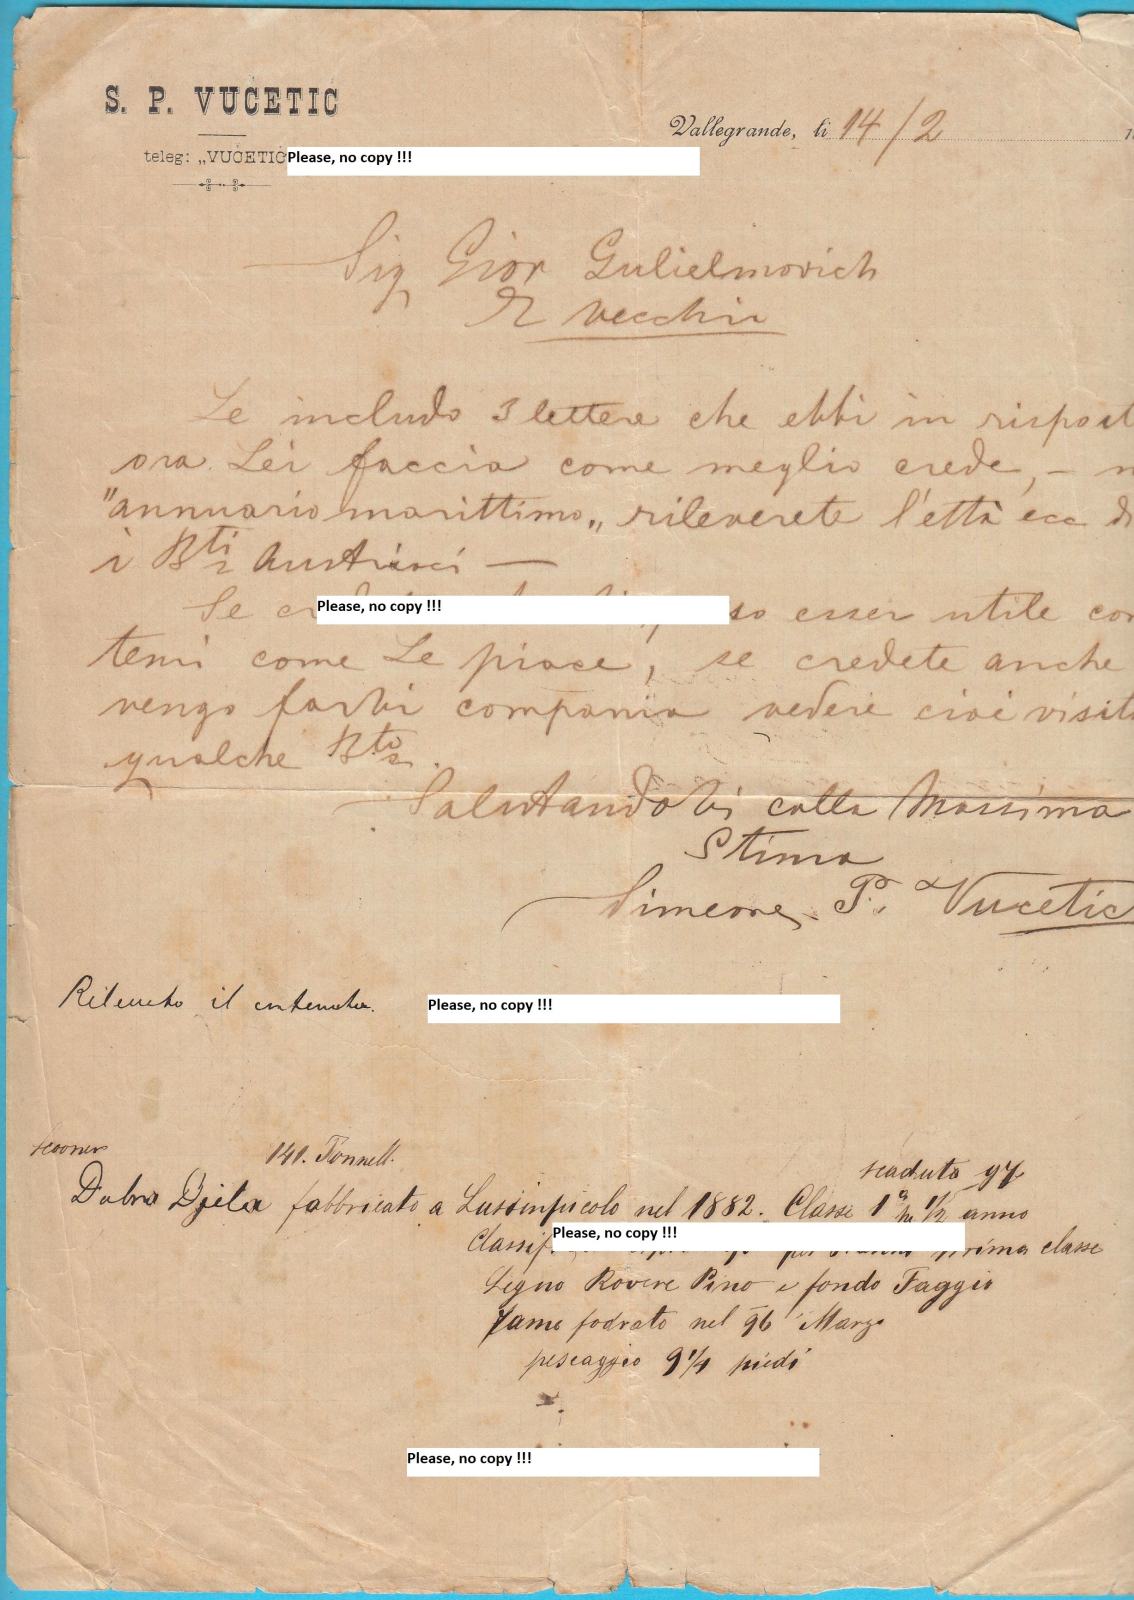 S. P. VUCETIC
Vallegrande, li 14/2
teleg: „VUCETIC
Please, no copy !!!
Sig Gior Gulielmovich
Vecchia
Le includo 3 lettere che ebbi in rispost
ora. Lei faccia come meglio crede, –
"annuario marittimo„ rileverete l'ettà ecc di
i Bti Austriaci —
Se
Please, no copy !!!
so esser utile com
temi come Le piace, se credete anche
vengo farVi compania vedere cioè visita
qualche Bto.
SalutandoVi colla Massima
Stima
Simeone P. Vucetic
Rilevato il contenuto.
Please, no copy !!!
scooner
141. Tonnell.
scaduto 97
Dobra Djela fabbricato a Lussinpicolo nel 1882. Classe 1 1/2 anno
Classif
Please, no copy !!!
prima classe
Legno Rovere Pino e fondo Faggio
Rame fodrato nel 96 Marzo
pescaggio 9 1/4 piedi
Please, no copy !!!